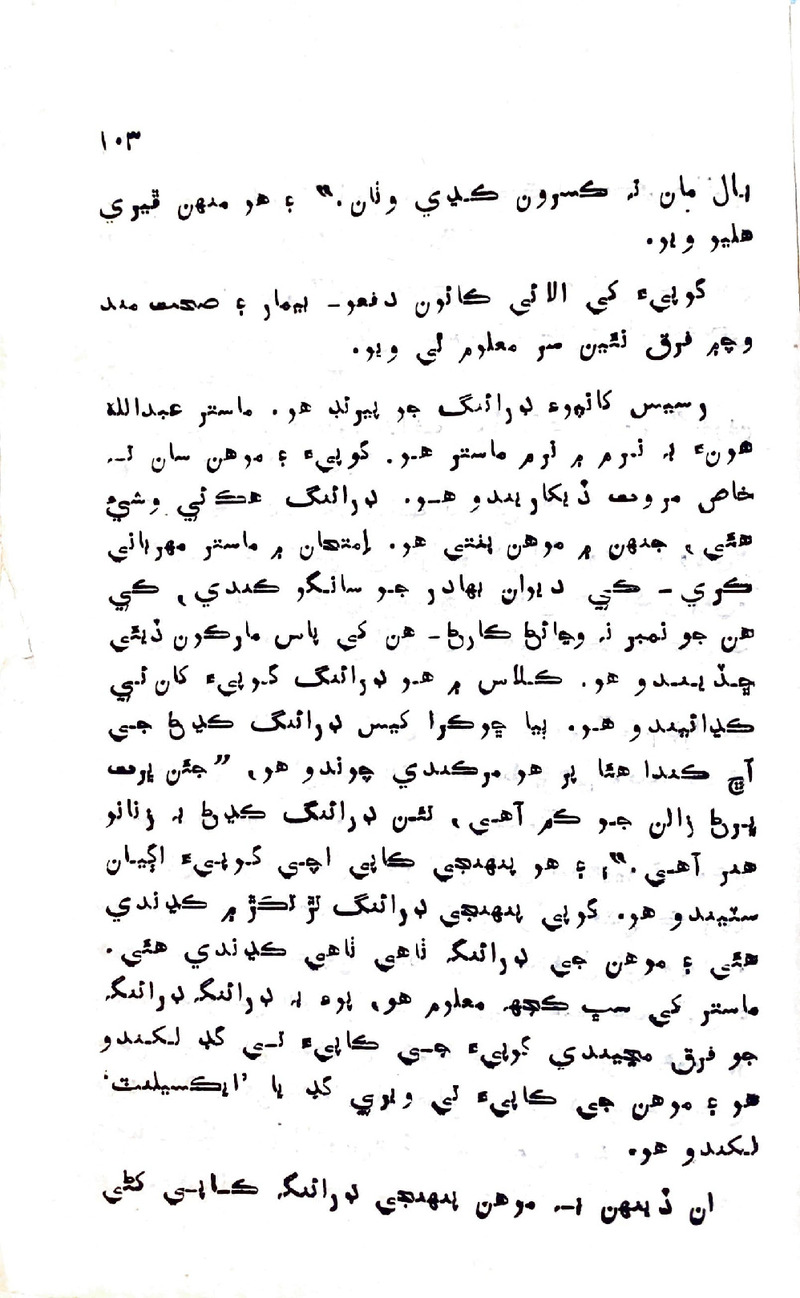 ١٠٣
ٻال مان نہ ڪسرون ڪڍي وٺان.” ۽ هو منهن ڦيري
هليو ويو.
گوپيءَ کي الائي ڪانون دفعو - بيمار ۽ صحت مند
وچ۾ فرق نئين سر معلوم ٿي ويو.
رسيس کانپوءِ ڊرائنگ جو پيرئڊ هو. ماستر عبدالله
هونءَ بہ نرم ۾ نرم ماستر هو. گوپيءَ ۽ موهن سان تہ
خاص مروت ڏيکاريندو هو. ڊرائنگ هڪ ئي وشيہ
هئي، جنهن ۾ موهن پنتي هو. اِمتحان ۾ ماستر مهرباني
ڪري - ڪي ديوان بهادر جو سانگو ڪندي، ڪي
هن جو نمبر نہ وڃائڻ ڪارڻ - هن کي پاس مارڪون ڏيئي
ڇڏيندو هو. ڪلاس ۾ هو ڊرائنگ گوپيءَ کان ئي
ڪڍائيندو هو. ٻيا ڇوڪرا کيس ڊرائنگ ڪڍڻ جي
آڇ ڪندا هئا پر هو مرڪندي چوندو هو، ”جئن ڀرت
ڀرڻ زالن جو ڪم آهي، تئن ڊرائنگ ڪڍڻ بہ زنانو
هنر آهي.”، ۽ هو پنهنجي ڪاپي اچي گوپيءَ اڳيان
سٽيندو هو. گوپي پنهنجي ڊرائنگ لڙ ٿڪڙ ۾ ڪڍندي
هئي ۽ موهن جي ڊرائنگ ٺاهي ٺاهي ڪڍندي هئي.
ماستر کي سڀ ڪڇهہ معلوم هو، پوءِ بہ ڊرائنگ ڊرائنگ
جو فرق مڃيندي گوپيءَ جي ڪاپيءَ تي گڊ لکندو
هو ۽ موهن جي ڪاپيءَ تي ويري گڊ يا ’ايڪسيلنٽ‘
لکندو هو.
ان ڏينهن بہ موهن پنهنجي ڊرائنگ ڪاپي کڻي